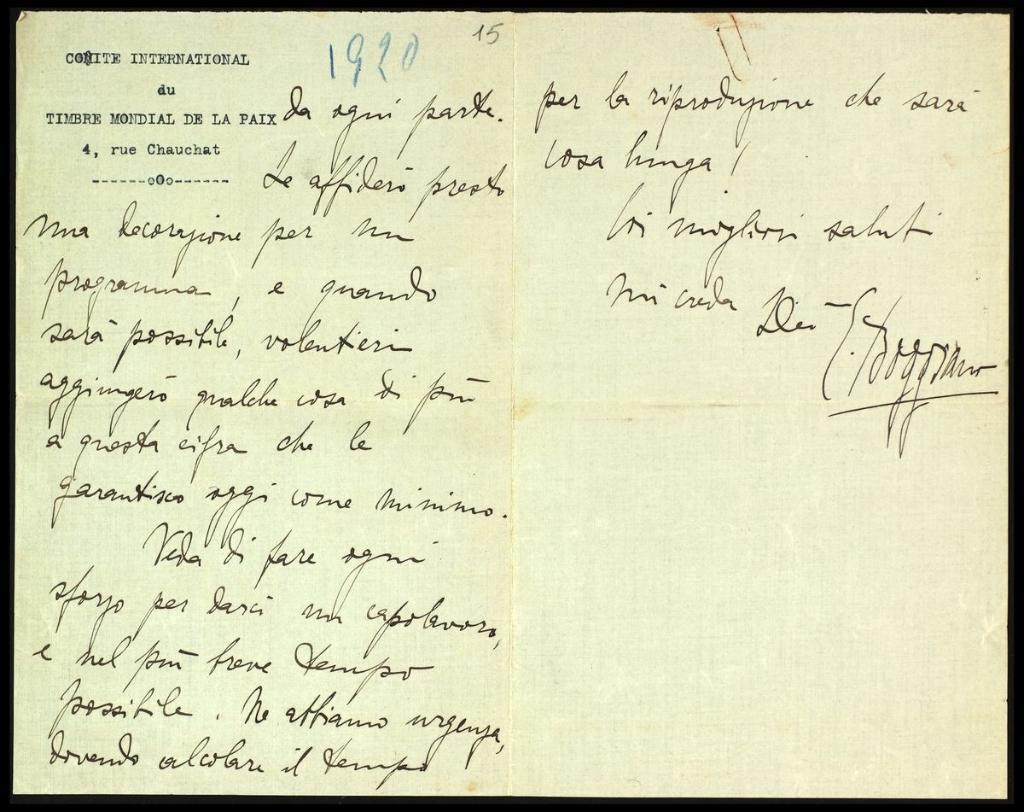 COMITE INTERNATIONAL
du
TIMBRE MONDIAL DE LA PAIX
4, rue Chauchat
-------oOo-------
1920
15
da ogni parte.
Le affiderò presto
una decorazione per un
programma, e quando
sarà possibile, volentieri
aggiungerò qualche cosa di più
a questa cifra che le
garantisco oggi come minimo.
Veda di fare ogni
sforzo per darci un capolavoro,
e nel più breve tempo
possibile. Ne abbiamo urgenza,
dovendo calcolare il tempo
per la riproduzione che sarà
cosa lunga!
Coi migliori saluti
mi creda